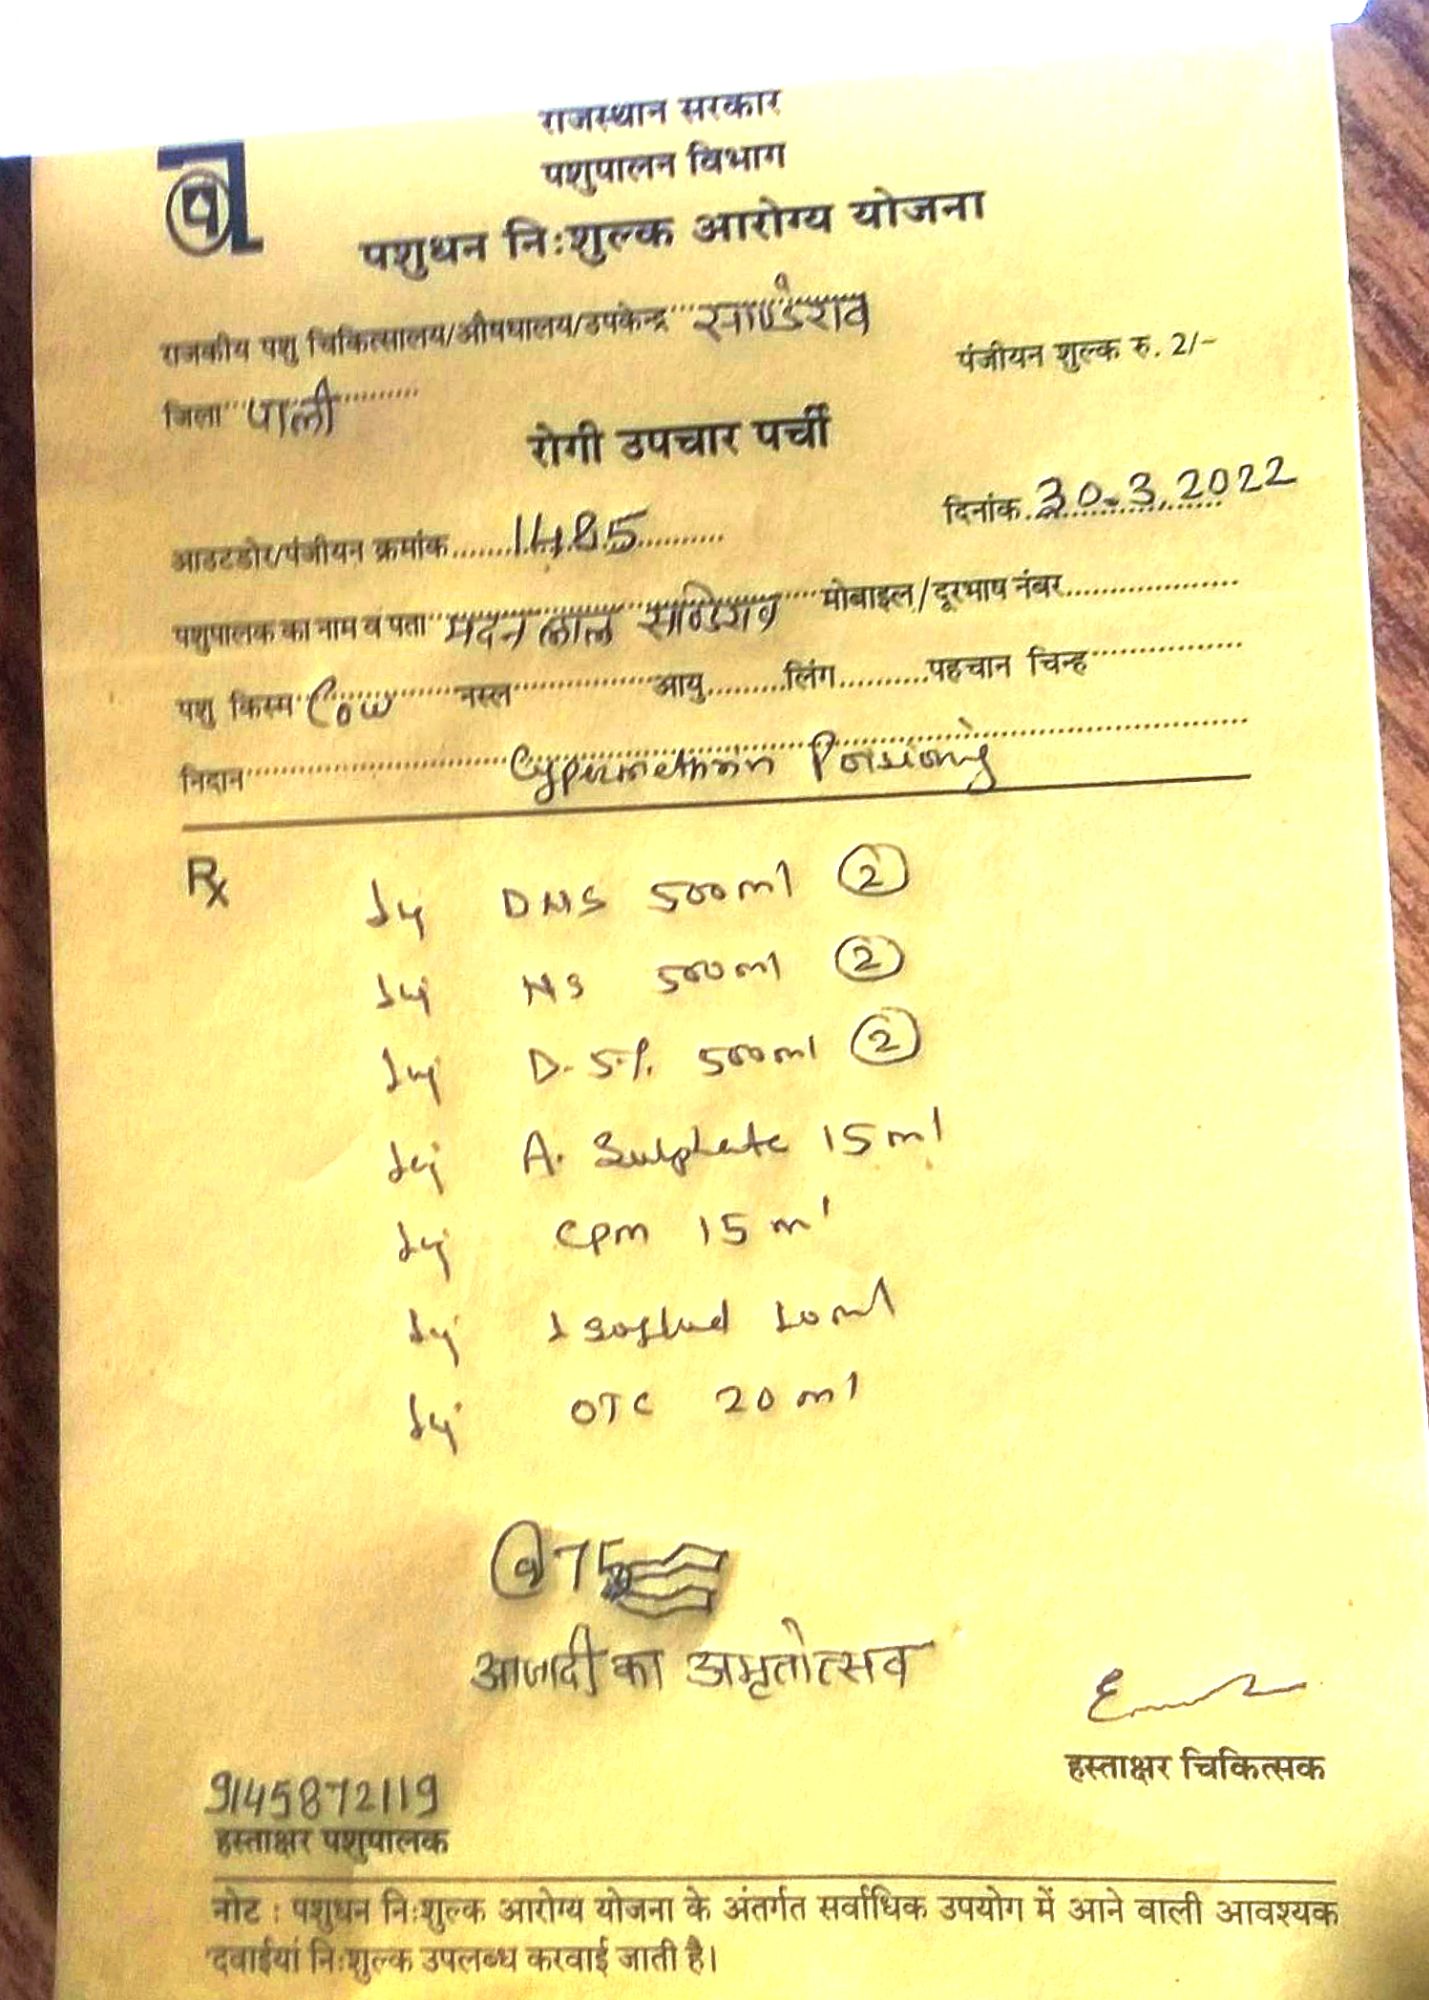 राजस्थान सरकार
पशुपालन विभाग
पशुधन निःशुल्क आरोग्य योजना
राजकीय पशु चिकित्सालय/औषधालय/उपकेन्द्र साण्डेराव
पंजीयन शुल्क रु. 2/-
जिला पाली
रोगी उपचार पर्ची
आउटडोर/पंजीयन क्रमांक 1485 दिनांक 30-3.2022
पशुपालक का नाम व पता मदन लाल साण्डेराव मोबाइल/दूरभाष नंबर
पशु किस्म Cow नस्ल आयु लिंग पहचान चिन्ह
निदान Cypermethrin
Rx
Inj DNS 500ml 2
Inj NS 500ml 2
Inj D-5% 500ml 2
Inj A. Sulphate 15ml
Inj CPM 15ml
Inj Isoflud 10ml
Inj OTC 20ml
75
आजादी का अमृतोत्सव
हस्ताक्षर चिकित्सक
9145872119
हस्ताक्षर पशुपालक
नोट : पशुधन निःशुल्क आरोग्य योजना के अंतर्गत सर्वाधिक उपयोग में आने वाली आवश्यक
दवाईयां निःशुल्क उपलब्ध करवाई जाती है।